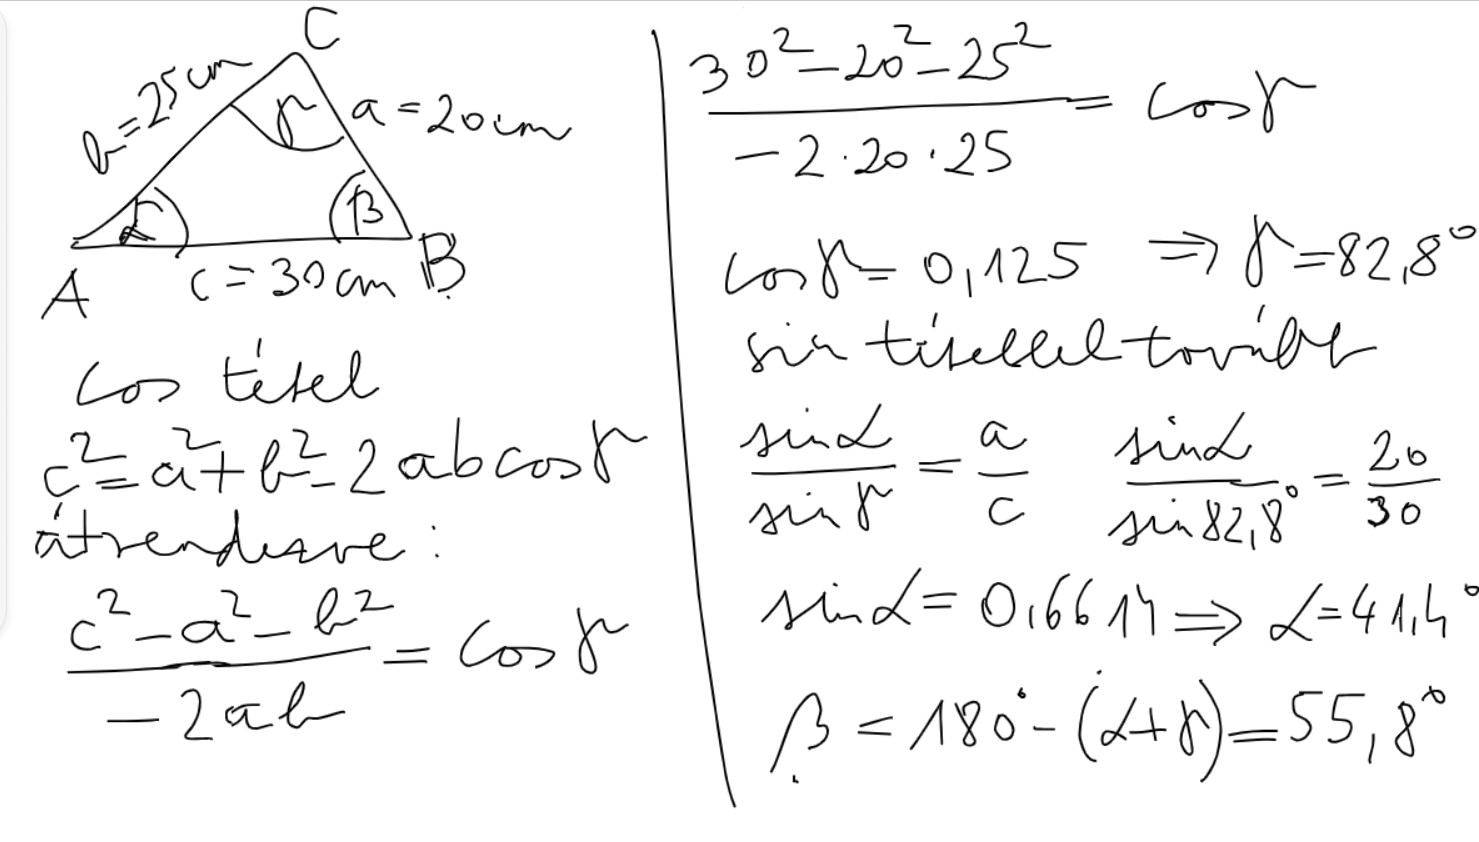 C
b=25cm
γ
a=20cm
α
β
A
c=30cm
B
cos tétel
c²=a²+b²-2abcosγ
átrendezve:
(c²-a²-b²)/(-2ab) = cosγ
(30²-20²-25²)/(-2·20·25) = cosγ
cosγ=0,125 ⇒ γ=82,8°
sin tétellel tovább
sinα/sinγ = a/c sinα/sin82,8° = 20/30
sinα=0,6614 ⇒ α=41,4°
β=180°-(α+γ)=55,8°